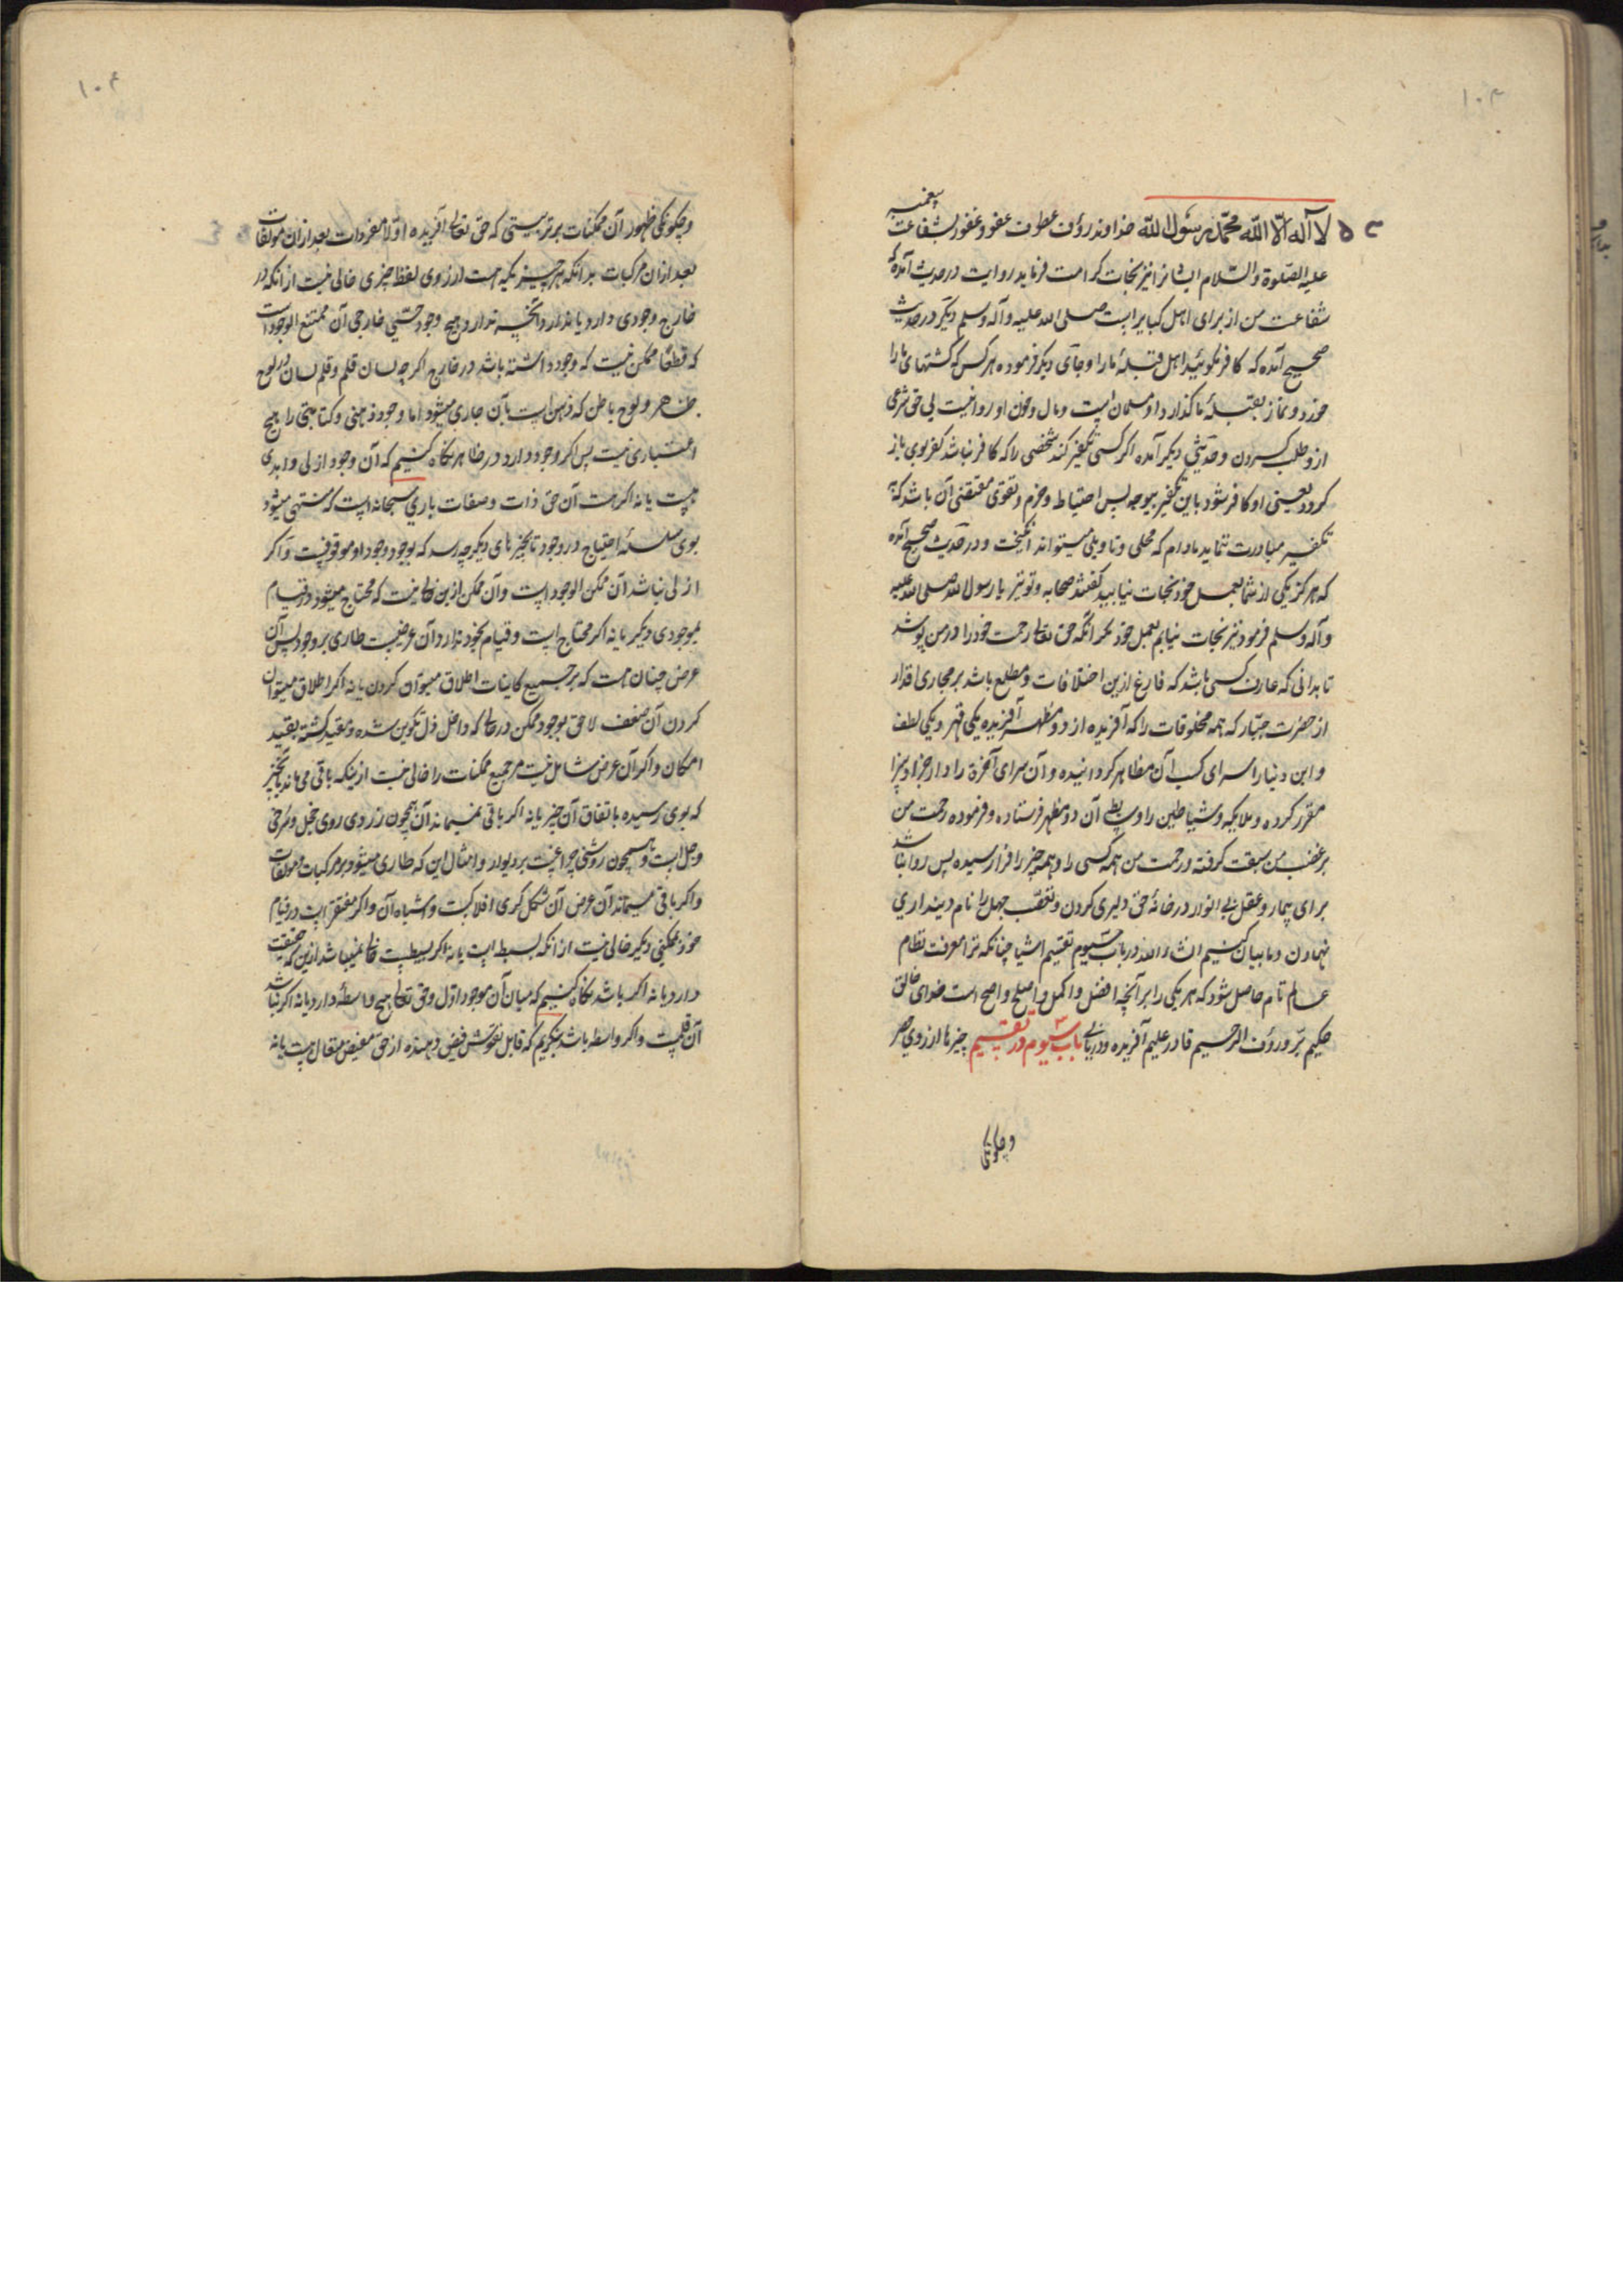 ۱۰۳
لا اله الا الله محمد رسول الله خداوند رؤف عطوف عفو و غفور بشفاعت پیغمبر
علیه الصلوة والسلام ایشانرا نیز نجات کرامت فرماید روایت در حدیث آمده که
شفاعت من از برای اهل کبایر است صلی الله علیه وآله وسلم دیگر در حدیث
صحیح آمده که کافر مکوئید اهل قبلۀ ما را و جای دیگر فرموده هر کس که کشتهای ما را
خورد و نماز بقبلۀ ما کذارد او مسلمان است و مال و خون او روا نیست بی حق شرعی
ازو طلب کردن و حدیثی دیگر آمده اکر کسی تکفیر کند شخصی را که کافر نباشد کفر بوی باز
کردد یعنی او کافر شود باین تکفیر بیوجه پس احتیاط و حزم و تقوی مقتضی آن باشد که
تکفیر مبادرت ننماید مادام که محلی و تاویلی میتواند انگیخت و در حدیث صحیح آمده
که هرکز یکی از شما بعمل خود نجات نیابید کفتند صحابه و تو نیز یا رسول الله صلی الله علیه
وآله وسلم فرمود نیز نجات نیابم بعمل خود مکر آنکه حق تعالی رحمت خود را در من پوشد
تا بدانی که عارف کسی باشد که فارغ ازین اختلافات و مطلع باشد بر مجاری اقدار
از حضرت جبار که همه مخلوقات را که آفریده از دو مظهر آفریده یکی قهر و یکی لطف
و این دنیا را سرای کسب آن مظاهر کردانیده و آن سرای آخرة را دار جزا و سزا
مقرر کرده و ملایکه و شیاطین را وسایط آن دو مظهر فرستاده و فرموده رحمت من
بر غضب من سبقت کرفته و رحمت من همه کسی را و همه چیز را فرا رسیده پس روا نباشد
برای بیمار و عقل بی انوار در خانۀ حق دلیری کردن و تعصب جهل را نام دینداری
نهادن و ما بیان کنیم انشاء الله در باب سیوم تقسیم اشیا چنانکه ترا معرفت نظام
عالم تام حاصل شود که هر یکی را بر آنچه افضل و اکمل و اصلح و اصح است خدای خالق
حکیم بر و رؤف الرحیم قادر علیم آفریده باب سیوم در تقسیم چیزها از روی حصر
و چکونکی
۱۰۴
و چکونکی ظهور آن ممکنات بر ترتیبی که حق تعالی آفریده اولا مفردات بعد از ان مولفات
بعد از ان مرکبات بدانکه هر چیز یکه هست از روی لفظ چیزی خالی نیست از انکه در
خارج وجودی دارد یا ندارد و آنچه ندارد هیچ وجود حسی خارجی آن ممتنع الوجود است
که قطعا ممکن نیست که وجود داشته باشد در خارج اکر چه لسان قلم و قلم لسان در لوح
ظاهر و لوح باطن که ذهن است بآن جاری میشود اما وجود ذهنی و کتابتی را هیچ
اعتباری نیست پس اکر وجود دارد در ظاهر نکاه کنیم که آن وجود ازلی و ابدی
هست یا نه اکر هست آن حق ذات و صفات باری سبحانه است که منتهی میشود
بوی سلسلۀ احتیاج در وجود تا بچیزهای دیگر چه رسد که بوجود وجود او موقوفست و اکر
ازلی نباشد آن ممکن الوجود است و آن ممکن ازین خالی نیست که محتاج میشود در قیام
بموجودی دیگر یا نه اکر محتاج است و قیام بخود ندارد آن عرضیست طاری بر وجود پس آن
عرض چنان هست که بر جمیع کاینات اطلاق میتوان کردن یا نه اکر اطلاق میتوان
کردن آن ضعف لاحق بوجود ممکن در حالی که داخل ذل تکوین شده و مقید کشته بقید
امکان و اکر آن عرض شامل نیست مر جمیع ممکنات را خالی نیست ازینکه باقی می ماند بآنچیز
که بوی رسیده باتفاق آن چیز یا نه اکر باقی نمیماند آن همچون زردی روی خجل و سرخی
وجل است و همچون روشنی چراغیست بر دیوار و امثال این که طاری میشود بر مرکبات و مولفات
و اکر باقی میماند آن عرض آن شکل کری افلاکست و اشباه آن و اکر مفتقر است در قیام
خود بممکنی دیگر خالی نیست از انکه بسیط است یا نه اکر بسیطست خالی نمیباشد ازین که حقیقت
دارد یا نه اکر باشد نکاه کنیم که میان آن موجود اول و حق تعالی هیچ واسطۀ دارد یا نه اکر نباشد
آن قلمست و اکر واسطه باشد بنکریم که قابل نقوش فیض دهنده از حق مفیض متعال هست یا نه